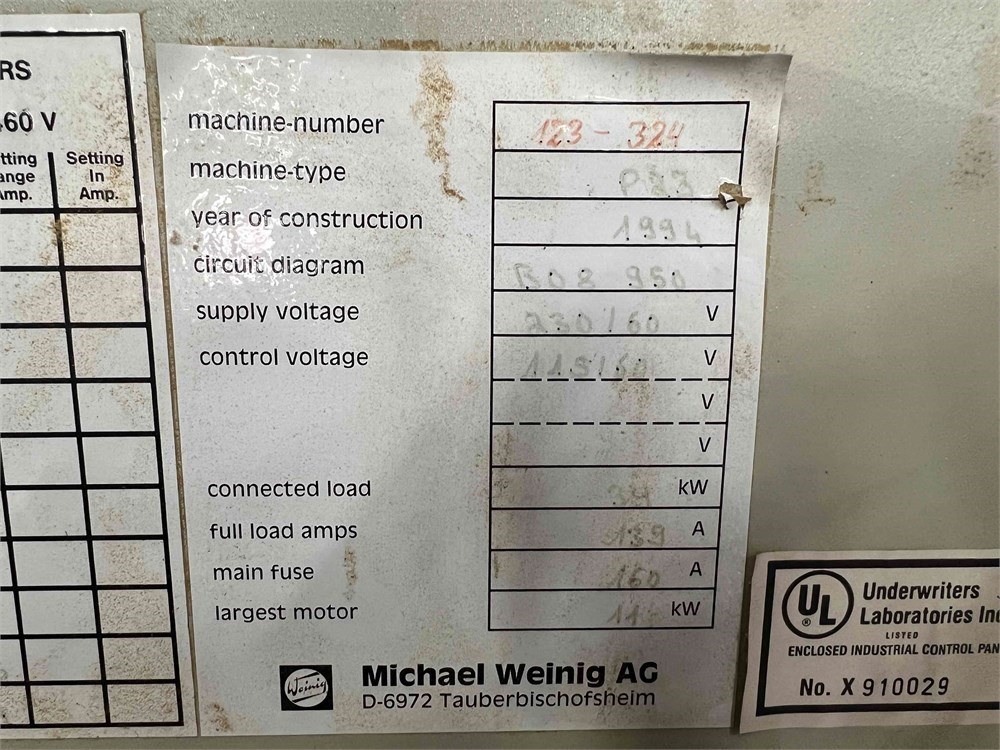 RS
460 V
tting
ange
Amp.
Setting
In
Amp.
machine-number 123-324
machine-type P23
year of construction 1994
circuit diagram B08 950
supply voltage 230/60 V
control voltage 115/60 V
V
V
connected load kW
full load amps 139 A
main fuse 160 A
largest motor 11 kW
Weinig
Michael Weinig AG
D-6972 Tauberbischofsheim
UL
Underwriters
Laboratories Inc
LISTED
ENCLOSED INDUSTRIAL CONTROL PAN
No. X 910029